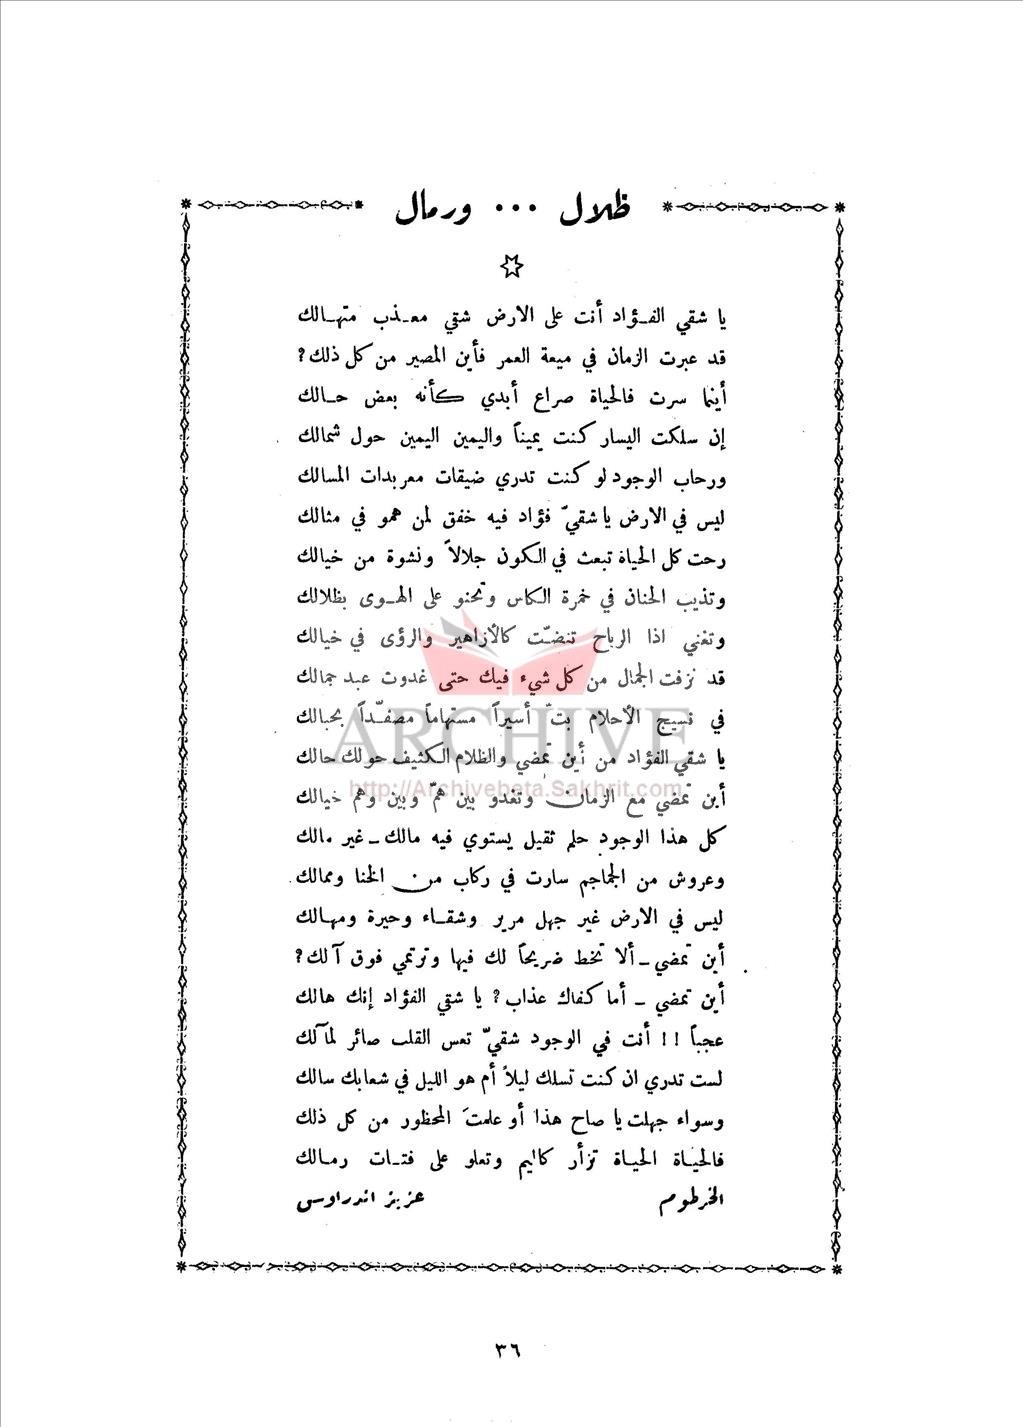 ظلال ... ورمال
يا شقي الفـؤاد أنت على الارض شقي معـذب متهـالك
قد عبرت الزمان في ميعة العمر فأين المصير من كل ذلك؟
أينما سرت فالحياة صراع أبدي كأنه بعض حـالك
إن سلكت اليسار كنت يميناً واليمين اليمين حول شمالك
ورحاب الوجود لو كنت تدري ضيقات معربدات المسالك
ليس في الارض يا شقيّ فؤاد فيه خفق لمن همو في مثالك
رحت كل الحياة تبعث في الكون جلالاً ونشوة من خيالك
وتذيب الحنان في خمرة الكاس وتحنو على الهـوى بظلالك
وتغني اذا الرياح تنضّت كالأزاهير والرؤى في خيالك
قد نزفت الجمال من كل شيء فيك حتى غدوت عبد جمالك
في نسيج الأحلام بتّ أسيراً مستهاماً مصفّداً بحبالك
يا شقي الفؤاد من أين تمضي والظلام الكثيف حولك حالك
أين تمضي مع الزمان وتغدو بين همّ وبين وهم خيالك
كل هذا الوجود حلم ثقيل يستوي فيه مالك ـ غير مالك
وعروش من الجماجم سارت في ركاب من الخنا وممالك
ليس في الارض غير جهل مرير وشقـاء وحيرة ومهـالك
أين تمضي ـ ألا تخط ضريحاً لك فيها وترتمي فوق آلك؟
أين تمضي ـ أما كفاك عذاب؟ يا شقي الفؤاد إنك هالك
عجباً !! أنت في الوجود شقيّ تعس القلب صائر لمآلك
لست تدري ان كنت تسلك ليلاً أم هو الليل في شعابك سالك
وسواء جهلت يا صاح هذا أو علمتَ المحظور من كل ذلك
فالحيـاة الحيـاة تزأر كاليم وتعلو على فتـات رمـالك
الخرطوم عزيز اندراوس
ARCHIVE
http://Archivebeta.Sakhrit.com
٣٦